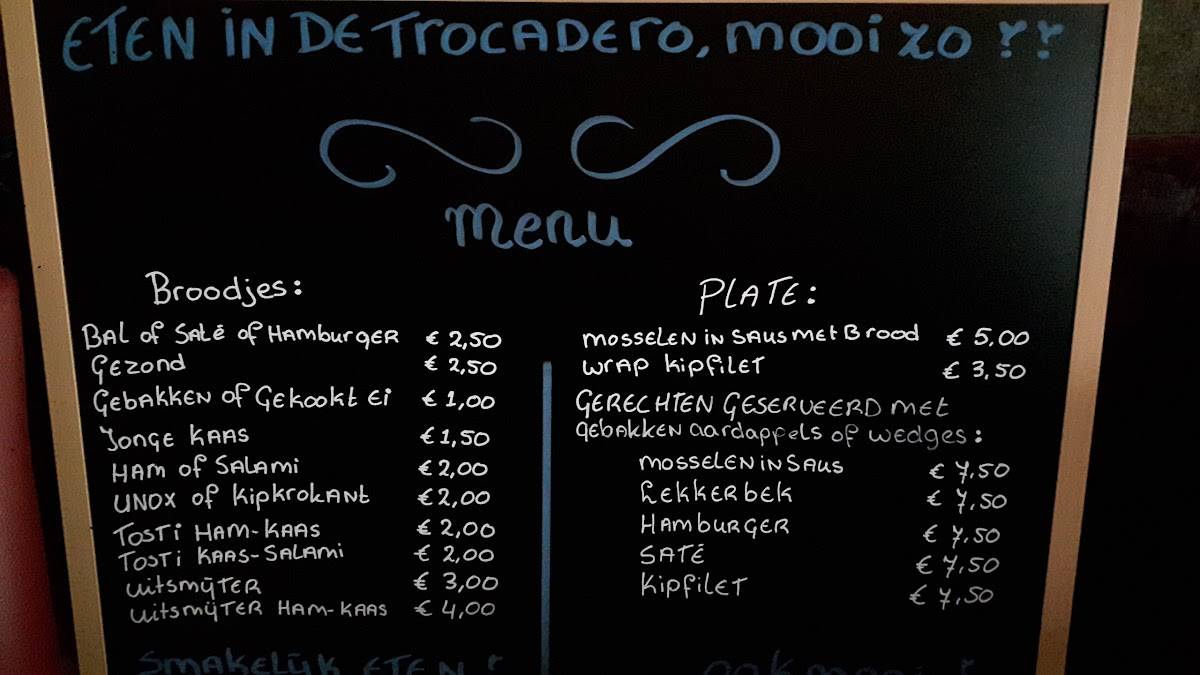 ETEN IN DE TROCADERO, MOOI ZO !!
Menu
Broodjes:
BAL of SATÉ of HAMBURGER € 2,50
GEZOND € 2,50
GEBAKKEN of GEKOOKT Ei € 1,00
JONGE KAAS € 1,50
HAM of SALAMI € 2,00
UNOX of KIPKROKANT € 2,00
TOSTI HAM-KAAS € 2,00
TOSTI KAAS-SALAMI € 2,00
UITSMIJTER € 3,00
UITSMIJTER HAM-KAAS € 4,00
SMAKELIJK ETEN !
PLATE:
MOSSELEN IN SAUS MET BROOD € 5,00
WRAP KIPFILET € 3,50
GERECHTEN GESERVEERD MET
GEBAKKEN AARDAPPELS OF WEDGES:
MOSSELEN IN SAUS € 7,50
LEKKERBEK € 7,50
HAMBURGER € 7,50
SATÉ € 7,50
KIPFILET € 7,50
OOK MOOI !